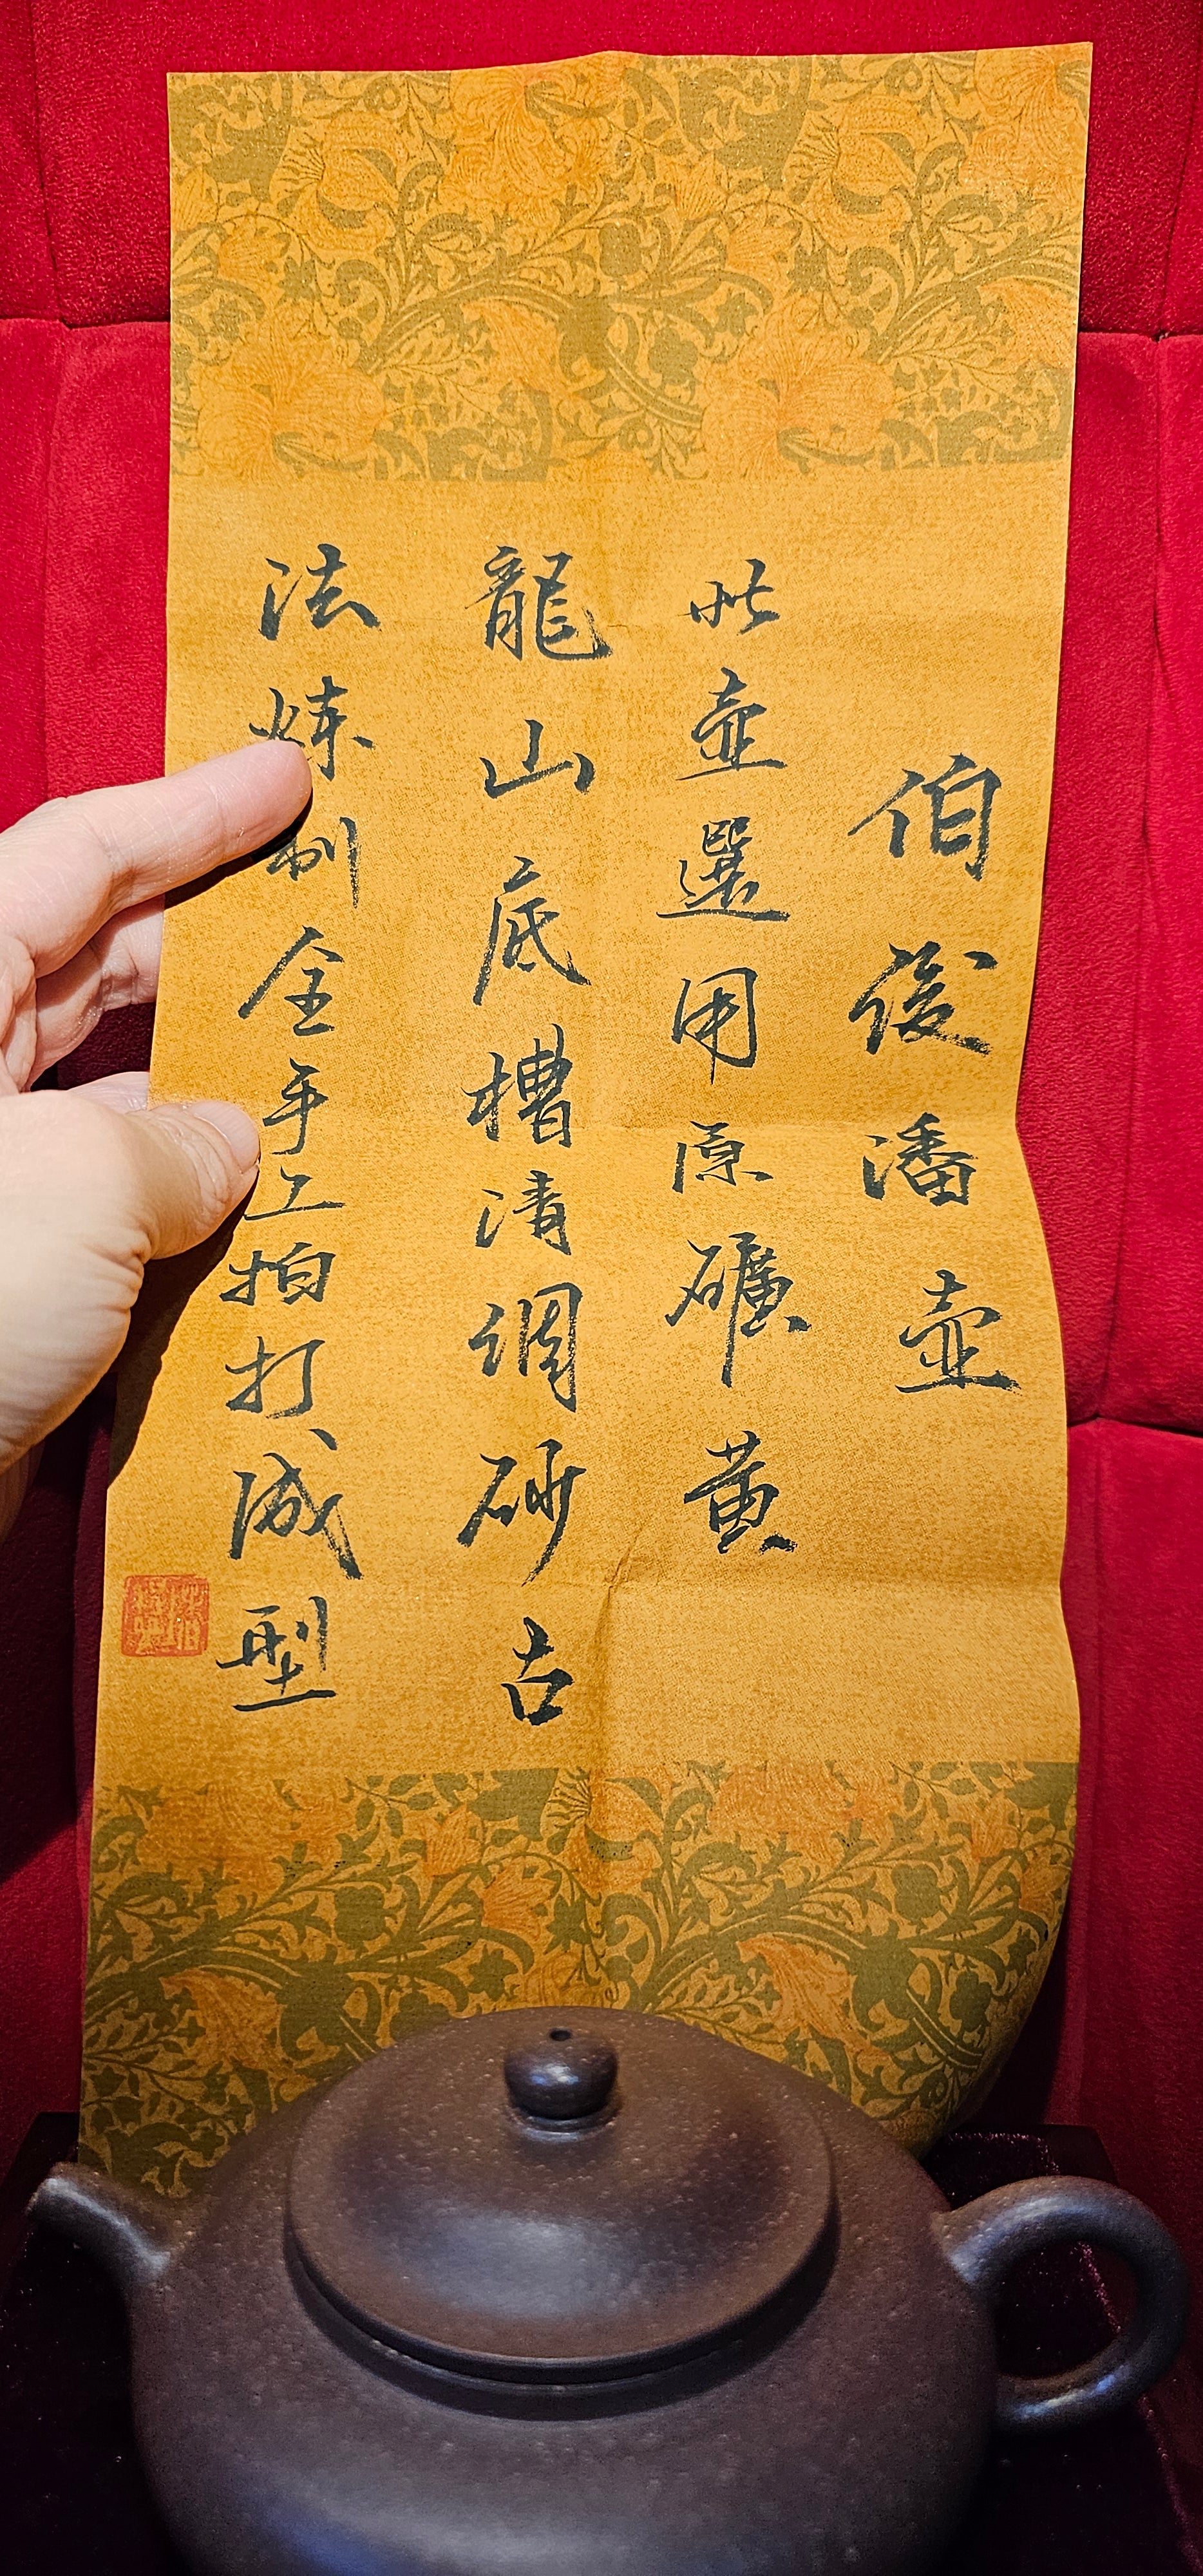 伯俊潘壺
此壺選用原礦黃
龍山底槽清調砂古
法煉制全手工拍打成型